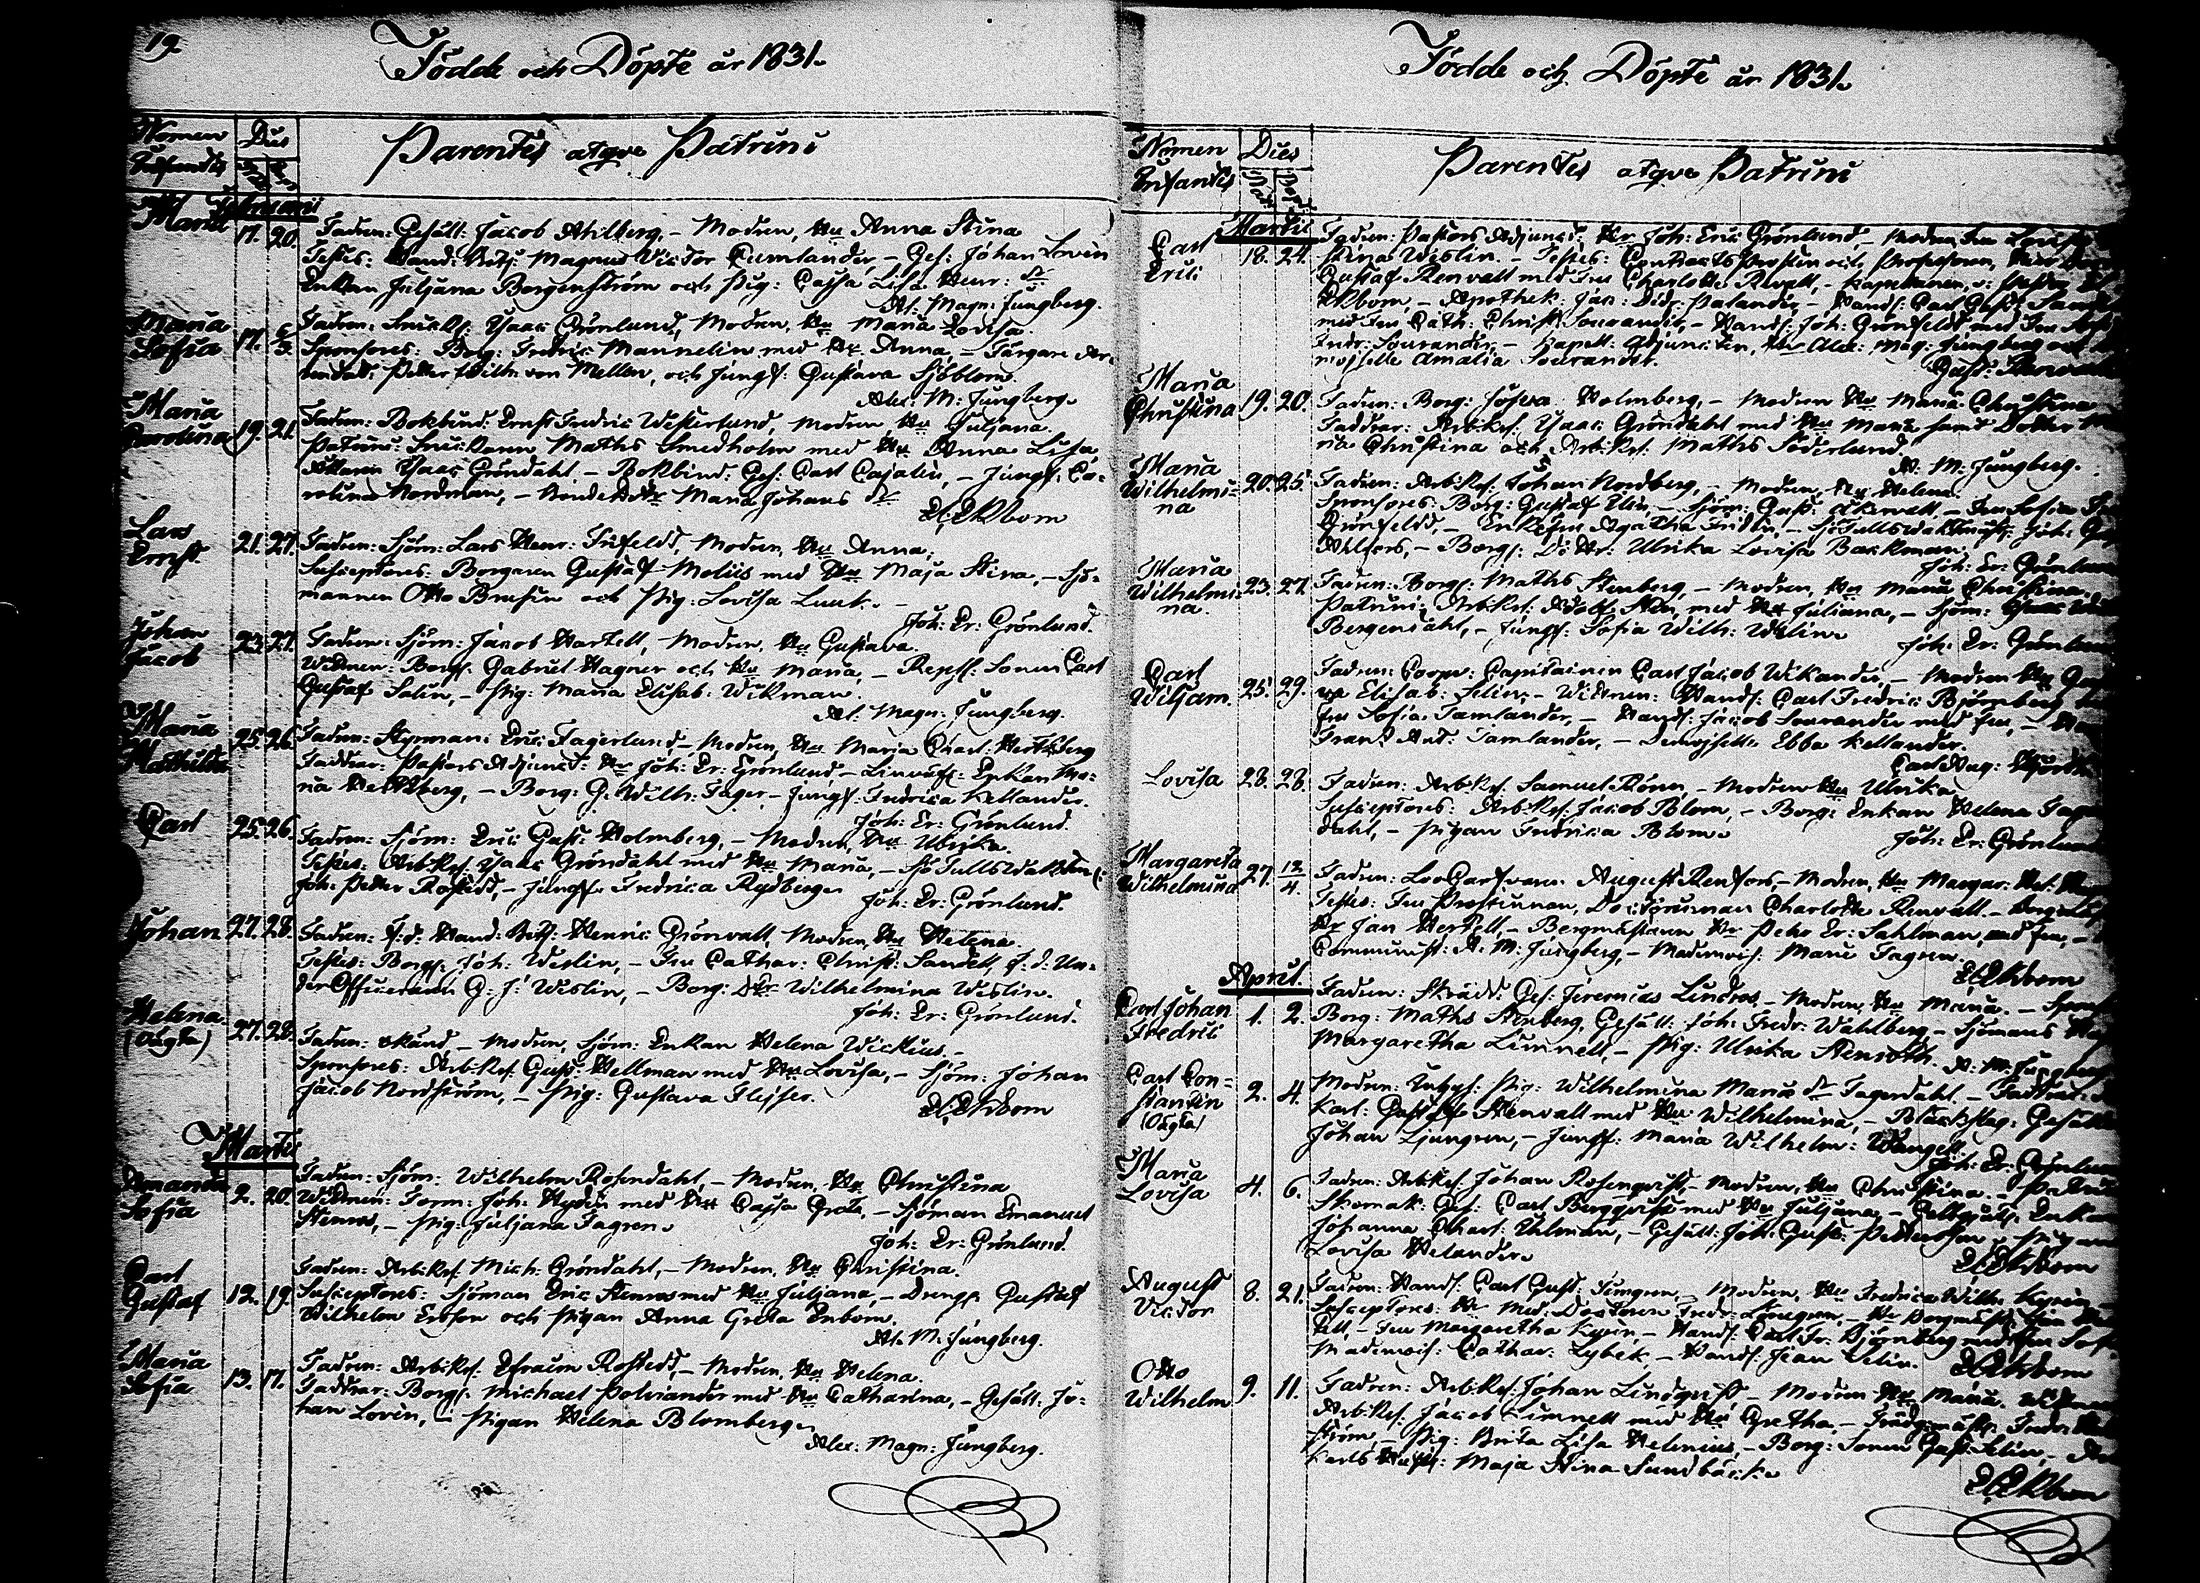 19
Födde och Döpte år 1831.
Nomen Infantis
Dies
Parentes atqve Patrini
Februarii
Maria 17. 20. Fadren: Gesäll: Jacob Ahlberg, – Modren, Hu Anna Stina
Testes: Hand: Betj: Magnus Victor Cumlander, – Ges: Johan Lovén
Enkan Juljana Borgenström och Pig: Cajsa Lisa Henr: dr
Al: Magn: Ljungberg.
Maria Sofia 17. 6/3. Fadren: Snick: Isaac Grönlund, Modren, Hu Maria Lovisa.
Sponsores: Borg: Fredric Mannelin med Hu Anna, – Färgare
Petter Wilh: von Mellen, och Jungf: Gustava Sjöblom.
Alex: M: Ljungberg.
Maria Carolina 19. 21. Fadren: Bokbind: Ernst Fredric Westerlund, Modren, Hu Juljana.
Patrini: Snickaren Maths Smedholm med Hu Anna Lisa,
Isaac Gröndahl, – Bokbind: Ges: Carl Cajalin, – Jungf: Ca-
rolina Nordman, – Maria Johans dr
Ekbom
Lars Ernst 21. 27. Fadren: Sjöm: Lars Henr: Frifeldt, Modren, Hu Anna;
Susceptores: Borgaren Gustaf Molüs med Hu Maja Stina, – Sjö-
mannen Otto Brusin och Pig: Lovisa Luuk. –
Joh: Er: Grönlund.
Johan Jacob 23. 27. Fadren: Sjöm: Jacob Hartell, Modren, Hu Gustava.
Wittnen: Borg: Gabriel Hagner och Hu Maria, – Repsl: Sonen Carl
Gustaf Selin, – Pig: Maria Elisab: Wikman.
Al: Magn: Ljungberg.
Maria Mathilda 25. 26. Fadren: Styrman: Eric Fagerlund – Modren, Hu Maria Charl: Hertzberg
Faddrar: Pastors Adjunct: Hr Joh: Er: Grönlund, – Enkan Ma-
ria Hertzberg, – Borg: G: Wilh: Fager, – Jungf: Fredrica Kellander.
Joh: Er: Grönlund.
Carl 25. 26. Fadren: Sjöm: Eric Gust: Holmberg, – Modren, Hu Ulrika.
Testes: Arbtkrl: Isaac Gröndahl med Hu Maria, – Sjö Tullswakten
Joh: Petter Rostedt, – Jungf: Fredrica Rydberg.
Joh: Er: Grönlund.
Johan 27. 28. Fadren: f. d. Hand: Betj: Henric Grönvall, Modren, Hu Helena.
Testes: Borg: Joh: Weslin, – Fru Cathar: Christ: Sandell, f. d. Un-
der Officeraren G: J: Weslin, – Borg: Dtr Wilhelmina Weslin.
Joh: Er: Grönlund.
Helena (Oägta) 27. 28. Fadren: okänd – Modren, Sjöm: Enkan Helena Wicklius, –
Sponsores: Arb:Krl: Gust: Hellman med Hu Lovisa, – Sjöm: Johan
Jacob Nordström, – Pig: Gustava Flejser.
Ekbom
Martii
Amanda Sofia 2. 20. Fadren: Sjöm: Wilhelm Rosendahl, – Modren, Hu Christina
Wittnen: Form: Joh: Hydén med Hu Cajsa Greta, – Sjöman Emanuel
Stenros, – Pig: Juljana Fagren.
Joh: Er: Grönlund.
Carl Gustaf 12. 19. Fadren: Arb:Krl: Mich: Gröndahl, – Modren, Hu Christina.
Susceptores: Sjöman Eric Stenros med Hu Juljana, – Dreng: Gustaf
Wilhelm Erson och Pigan Anna Greta Enbom.
Al: M: Ljungberg.
Maria Sofia 13. 17. Fadren: Arb:Krl: Efraim Rostedt, – Modren, Hu Helena.
Faddrar: Borg: Michael Polviander med Hu Catharina, – Gesäll: Jo-
han Lovén, – Pigan Helena Blomberg.
Alex: Magn: Ljungberg.
Födde och Döpte år 1831.
Nomen Infantis
Dies
Parentes atqve Patrini
Martii
Carl Eric 18. 24. Fadren: Pastors Adjunct: Hr Joh: Eric Grönlund, – Modren, Fru Lovisa
Stina Weslin. – Testes: Contracts Prosten och Professoren,
Gustaf Renvall med Fru Charlotte Rivell, – Kapellanen,
Ekbom, – Apothek: Jac: Didr: Palander, – Hand: Carl Gust:
med Fru Cath: Christ: Sourander, – Hand: Joh: Grönfeldt med Fru
Fredr: Sourander, – Kapell: Adjuncten, Hr Alex: Mag: Ljungberg och
mojselle Amalia Sourander.
Gust: Renvall
Maria Christina 19. 20. Fadren: Borg: Josua Holmberg, – Modren Hu Maria Christina
Faddrar: Arbtkrl: Isaac Gröndahl med Hu Maria samt Dotter
ria Christina och Arb:Krl: Maths Söderlund.
A. M: Ljungberg.
Maria Wilhelmi-na 20. 25. Fadren: Arb:Krl: Johan Nordberg, – Modren, Hu Helena.
Sponsores: Borg: Gustaf Elin, – Sjöm: Gust: Åkervall – Fru Sofia
Grönfeldt, – Enkefru Agatha Fridén, – Joh:
Ahlfors, – Borg: Dr: Ulrika Lovisa Backman.
Joh: Er: Grönlund
Maria Wilhelmi-na. 23. 27. Fadren: Borg: Maths Stenberg, – Modren, Hu Maria Christina.
Patrini: Arb:Krl: Adolf Sten, med Hu Juliana, – Sjöm:
Bergendahl, – Jungf: Sofia Wilh: Welin.
Joh: Er: Grönlund
Carl Wiljam. 25. 29. Fadren: Coopv: Capitainen Carl Jacob Wikander, – Modren Hu
va Elisab: Selin. – Wittnen: Hand: Carl Fredric Björnberg
Fru Sofia Tamlander, – Hand: Jacob Sourander med Fru, –
Frans Ant: Tamlander, – Demojselle Ebba Kellander.
Carl Aug:
Lovisa 28. 28. Fadren: Arb:Krl: Samuel Rönn, – Modren Hu Ulrika
Susceptores: Arb:Krl: Jacob Blom, – Borg: Enkan Helena
dahl, – Pigan Fredrica Blom.
Joh: Er: Grönlund
Margareta Wilhelmina 27. 12/4. Fadren: August Renfors, – Modren, Hu Margar:
Testes: Fru Prostinnan, Doctorinnan Charlotte Renvall. –
Hr Jan Hertell, – Bergmästaren Hr Pehr Er: Sahlman, med Fru, –
Communist: A. M: Ljungberg, – Mademois: Marie Fagren.
Ekbom
April.
Carl Johan Fredric 1. 2. Fadren: Skrädd: Ges: Jeremias Lindros, – Modren, Hu Maria. –
Borg: Maths Stenberg, Gesäll: Joh: Fredr: Wahlberg, – Sjömans
Margaretha Limnell, – Pig: Ulrika Stenroth.
A. M: Ljungberg
Carl Con-stantin (Oägta) 2. 4. Modren: Inhys: Pig: Wilhelmina Maria dr Fagerdahl. – Faddrar:
Karl: Gustaf Stenvall med Hu Wilhelmina, – Gesäll
Johan Ljungren, – Jungf: Maria Wilhelm: Wangel.
Joh: Er: Grönlund
Maria Lovisa 4. 6. Fadren: Arb:Krl: Johan Rosenqvist, – Modren, Hu Christina. –
Skomak: Ges: Carl Bergqvist med Hu Juljana, – Enkan
Johanna Charl: Ehlman, – Gesäll: Joh: Gust: Petterson –
Lovisa Helander.
Ekbom
August Victor 8. 21. Fadren: Hand: Carl Gust: Timgren, – Modren, Hu Fredrica Wilh: Kyrén
Susceptores: Hr Med: Doctoren Fredr:
tell, – Fru Margaretha Kyrén, – Hand: Carl Fr: Björnberg med Fru
Mademois: Cathar: Lybek, – Hand: Jean Selin.
Ekbom
Otto Wilhelm 9. 11. Fadren: Arb:Krl: Johan Lindqvist, – Modren Hu Maria.
Arb:Krl: Jacob Limnell med Hu Gretha, – Fredr:
ström, – Pig: Brita Lisa Helenius, – Borg: Sonen Gust: Selin, –
Karls Hust: Maja Stina Sundbäck.
Ekbom